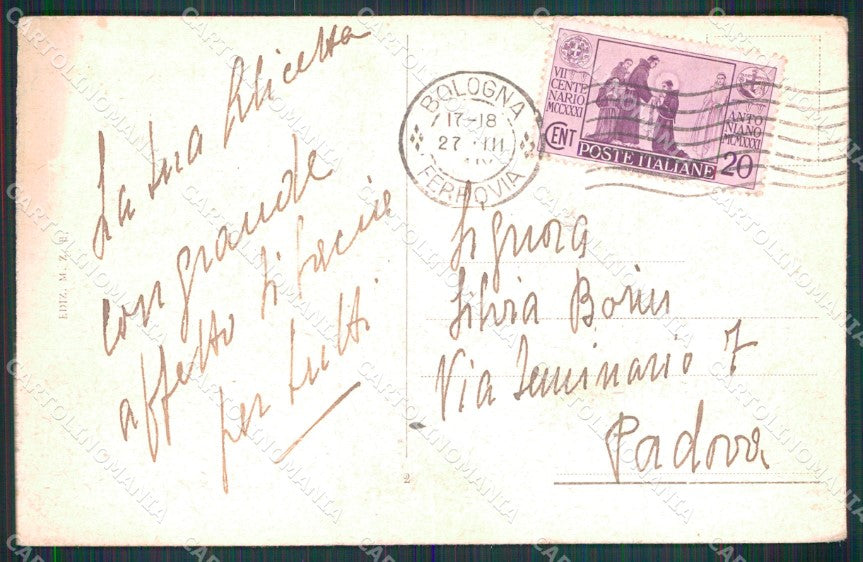 La tua Alicetta
con grande
affetto ti bacia
per tutti
EDIZ. M. Z. B.
BOLOGNA
17-18
27 III
FERROVIA
VII
CENTE
NARIO
MCCXXXI
ANTO
NIANO
MCMXXXI
CENT
POSTE ITALIANE
20
Signora
Silvia
Via Seminario 7
Padova
CARTOLINOMANIA